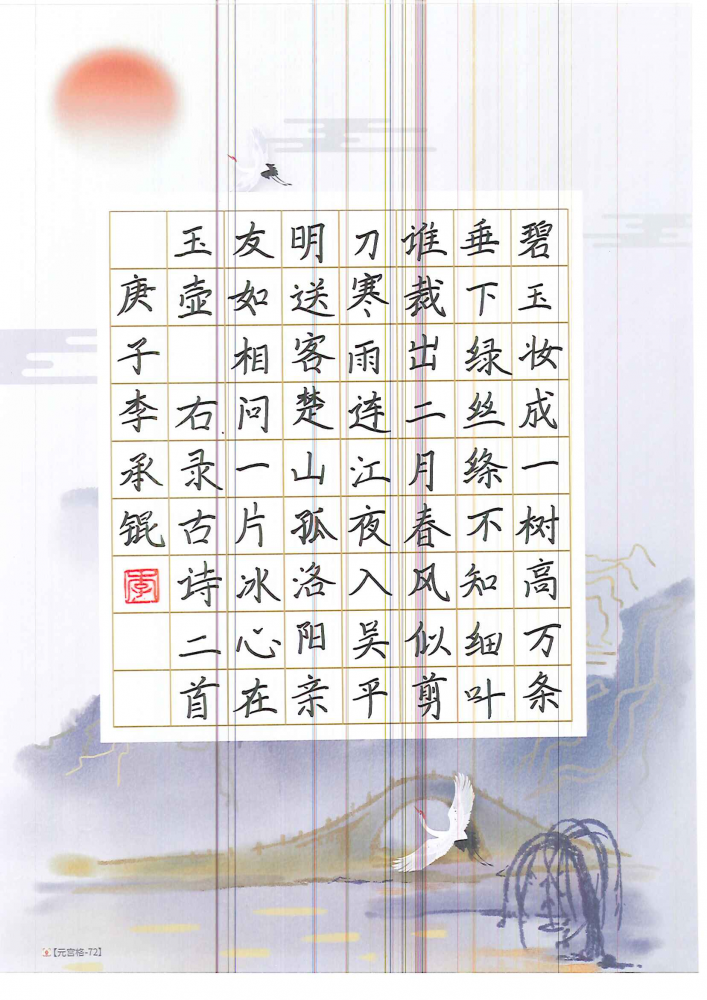 碧玉妆成一树高万条
垂下绿丝绦不知细叶
谁裁出二月春风似剪
刀寒雨连江夜入吴平
明送客楚山孤洛阳亲
友如相问一片冰心在
玉壶 右录古诗二首
庚子李承锟
李
【元宫格-72】